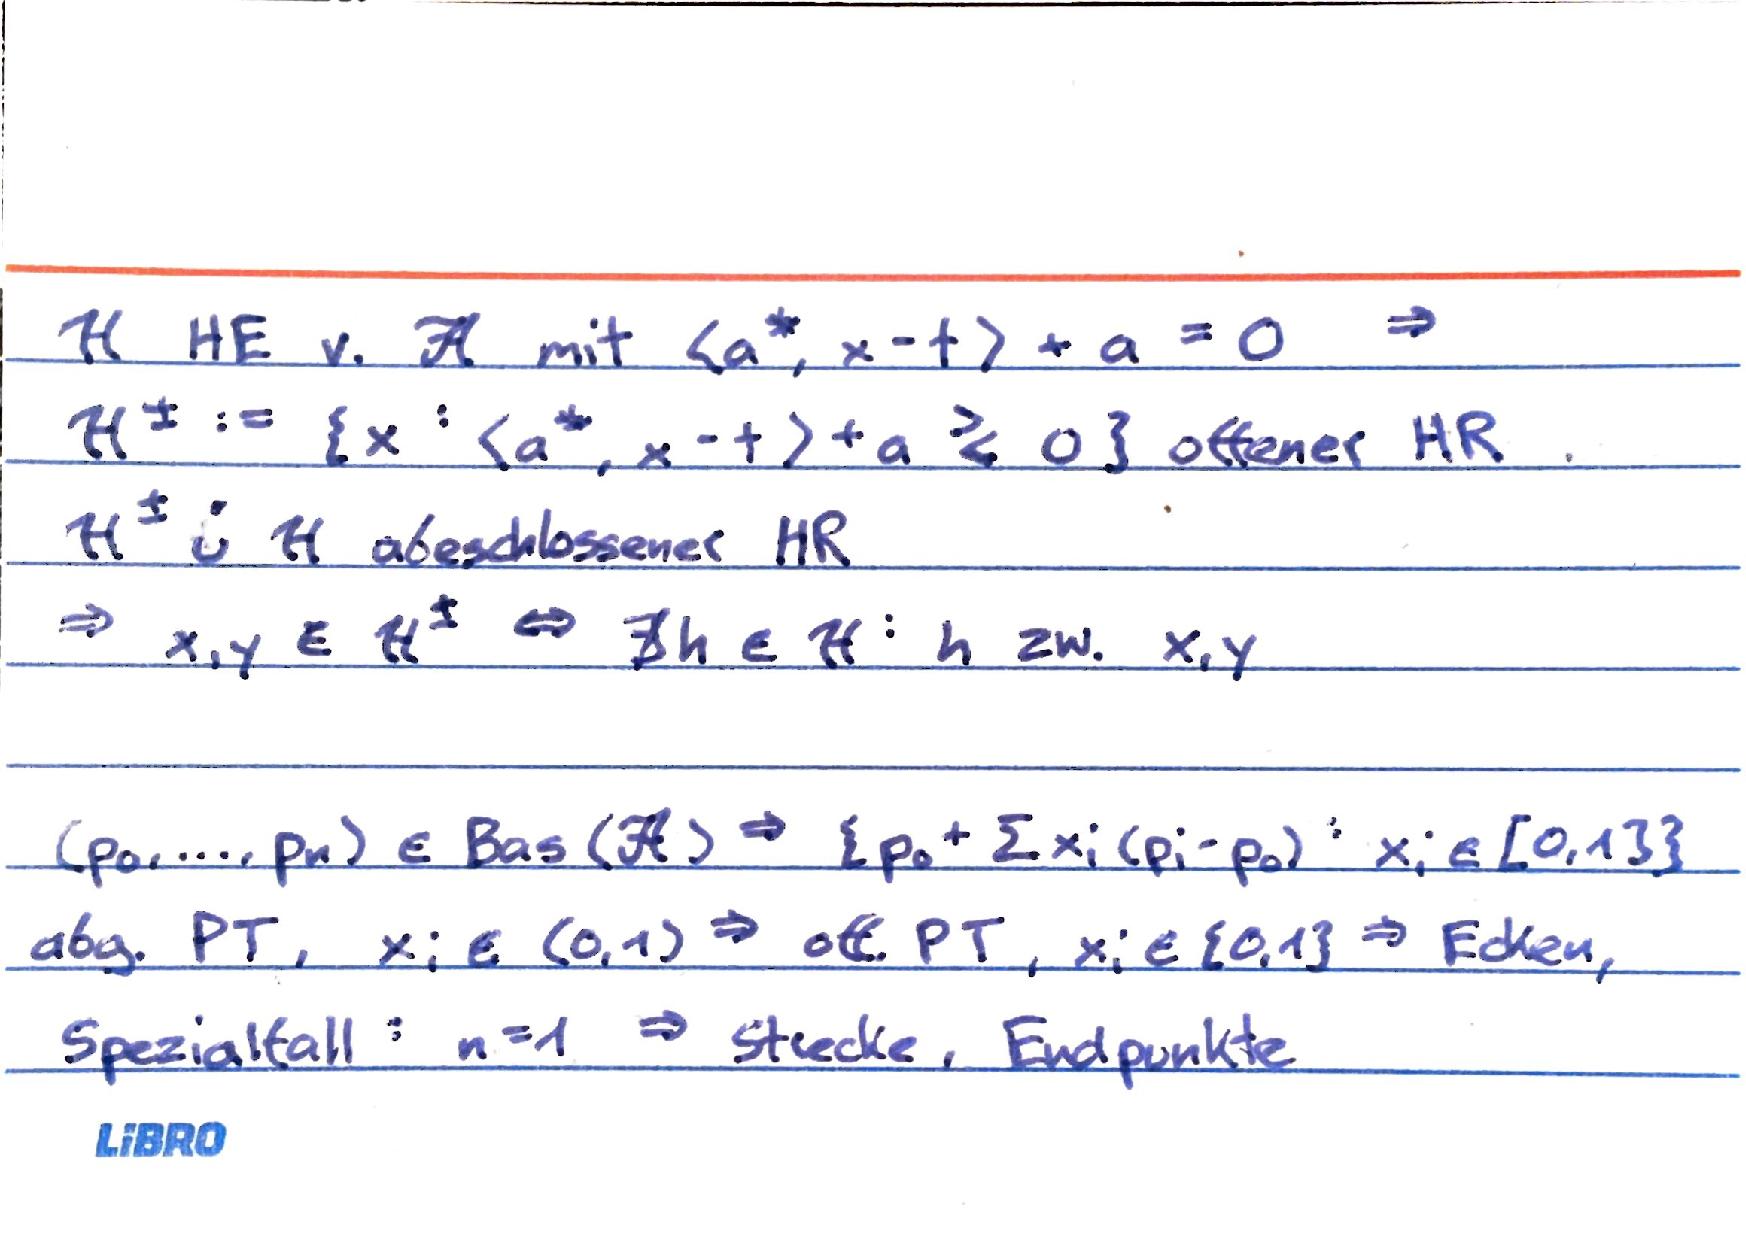 ℋ HE v. 𝒜 mit ⟨a*, x-t⟩ + a = 0 ⇒
ℋ^± := {x : ⟨a*, x-t⟩ + a ≷ 0} offener HR.
ℋ^± ∪̇ ℋ abeschlossener HR
⇒ x,y ∈ ℋ^± ⇔ ∄h ∈ ℋ : h zw. x,y
(p₀,....,pₙ) ∈ Bas(𝒜) ⇒ {p₀ + Σxᵢ(pᵢ-p₀) : xᵢ ∈ [0,1]}
abg. PT, xᵢ ∈ (0,1) ⇒ off. PT, xᵢ ∈ {0,1} ⇒ Ecken,
Spezialfall : n=1 ⇒ Strecke, Endpunkte
LiBRO